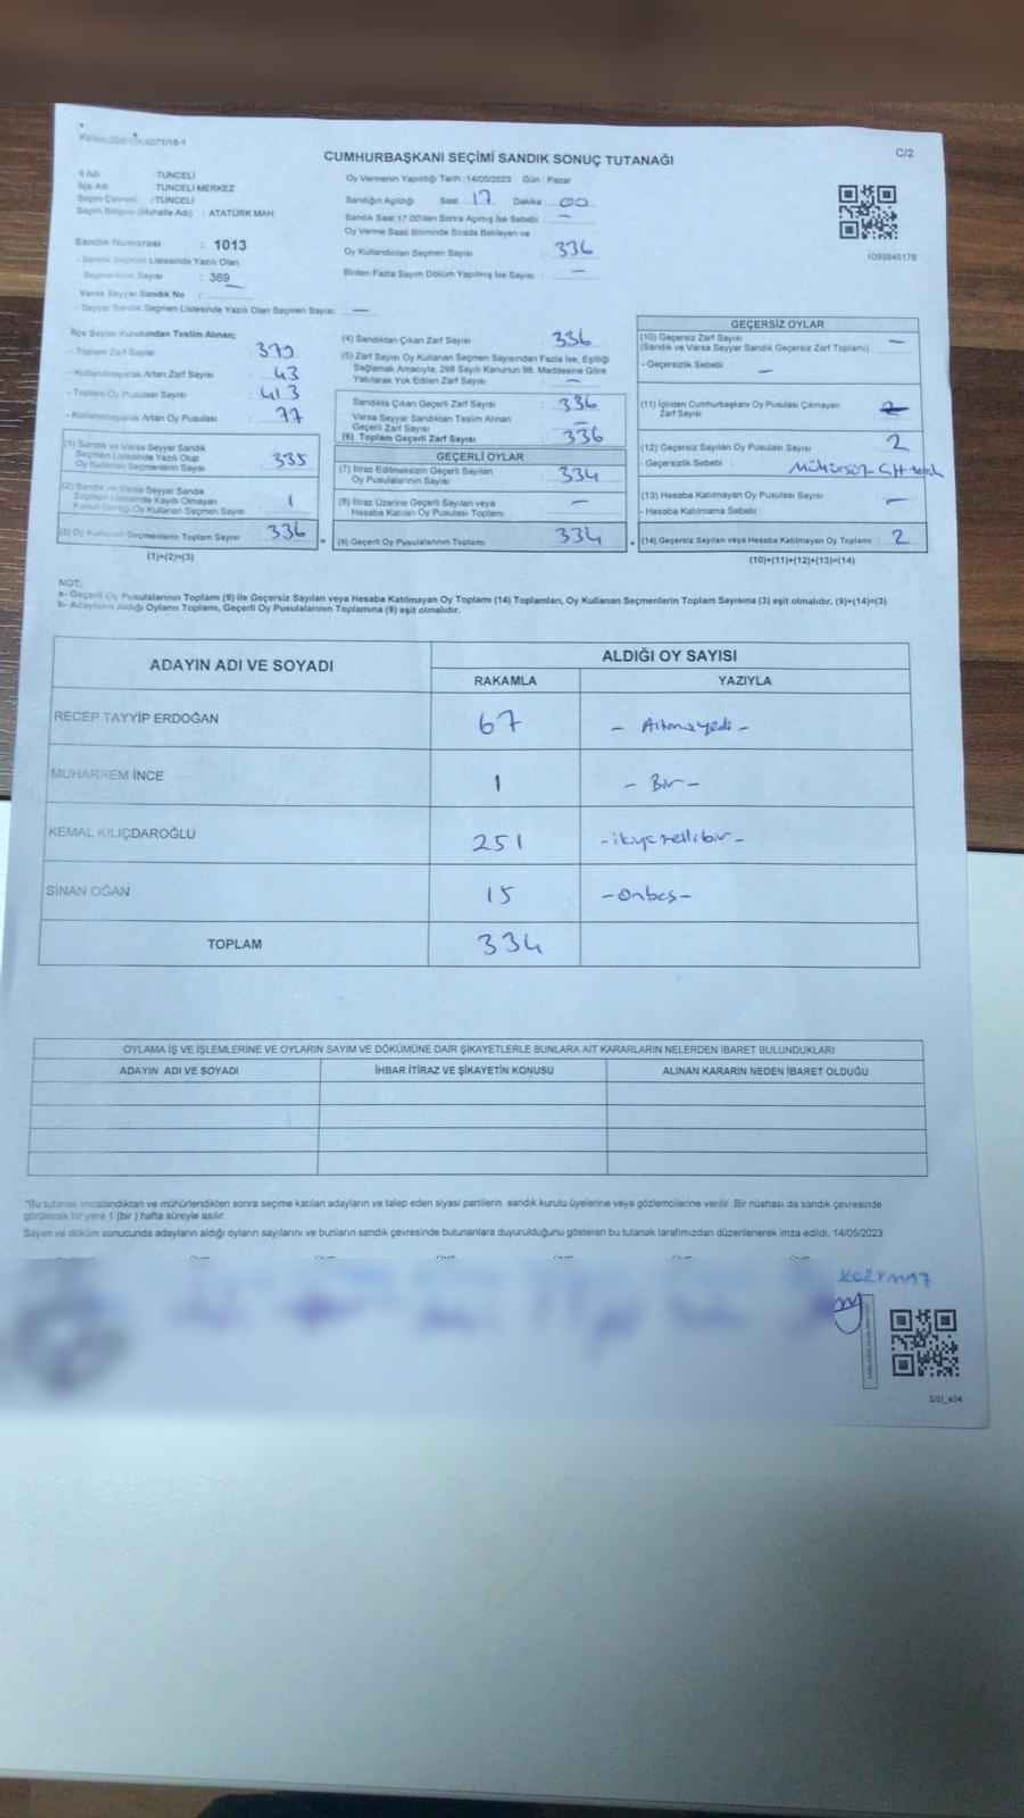 C/2
CUMHURBAŞKANI SEÇİMİ SANDIK SONUÇ TUTANAĞI
İl Adı : TUNCELİ
İlçe Adı : TUNCELİ MERKEZ
Seçim Çevresi : TUNCELİ
Seçim Bölgesi (Mahalle Adı) : ATATÜRK MAH.
Sandık Numarası : 1013
- Sandık Seçmen Listesinde Yazılı Olan
Seçmenlerin Sayısı : 369
Varsa Seyyar Sandık No :
- Seyyar Sandık Seçmen Listesinde Yazılı Olan Seçmen Sayısı: —
Oy Vermenin Yapıldığı Tarih :14/05/2023 Gün : Pazar
Sandığın Açıldığı Saat : 17 Dakika : 00
Sandık Saat 17.00'den Sonra Açılmış İse Sebebi : —
Oy Verme Saati Bitiminde Sırada Bekleyen ve
Oy Kullandırılan Seçmen Sayısı : 336
Birden Fazla Sayım Döküm Yapılmış İse Sayısı : —
1093840178
İlçe Seçim Kurulundan Teslim Alınan;
- Toplam Zarf Sayısı : 379
- Kullanılmayarak Artan Zarf Sayısı : 43
- Toplam Oy Pusulası Sayısı : 413
- Kullanılmayarak Artan Oy Pusulası : 77
(1) Sandık ve Varsa Seyyar Sandık
Seçmen Listesinde Yazılı Olup
Oy Kullanan Seçmenlerin Sayısı : 335
(2) Sandık ve Varsa Seyyar Sandık
Seçmen Listesinde Kayıtlı Olmayan
Oy Kullanan Seçmen Sayısı : 1
(3) Oy Kullanan Seçmenlerin Toplam Sayısı : 336
(1)+(2)=(3)
(4) Sandıktan Çıkan Zarf Sayısı : 336
(5) Zarf Sayısı Oy Kullanan Seçmen Sayısından Fazla İse, Eşitliği
Sağlamak Amacıyla, 298 Sayılı Kanunun 98. Maddesine Göre
Yakılarak Yok Edilen Zarf Sayısı : —
Sandıkta Çıkan Geçerli Zarf Sayısı : 336
Varsa Seyyar Sandıktan Teslim Alınan
Geçerli Zarf Sayısı : —
(6) Toplam Geçerli Zarf Sayısı : 336
GEÇERLİ OYLAR
(7) İtiraz Edilmeksizin Geçerli Sayılan
Oy Pusulalarının Sayısı : 334
(8) İtiraz Üzerine Geçerli Sayılan veya
Hesaba Katılan Oy Pusulası Toplamı : —
(9) Geçerli Oy Pusulalarının Toplamı : 334
GEÇERSİZ OYLAR
(10) Geçersiz Zarf Sayısı
(Sandık ve Varsa Seyyar Sandık Geçersiz Zarf Toplamı) : —
- Geçersizlik Sebebi : —
(11) İçinden Cumhurbaşkanı Oy Pusulası Çıkmayan
Zarf Sayısı :
(12) Geçersiz Sayılan Oy Pusulası Sayısı : 2
- Geçersizlik Sebebi :
(13) Hesaba Katılmayan Oy Pusulası Sayısı : —
- Hesaba Katılmama Sebebi :
(14) Geçersiz Sayılan veya Hesaba Katılmayan Oy Toplamı : 2
(10)+(11)+(12)+(13)=(14)
NOT:
a- Geçerli Oy Pusulalarının Toplamı (9) ile Geçersiz Sayılan veya Hesaba Katılmayan Oy Toplamı (14) Toplamları, Oy Kullanan Seçmenlerin Toplam Sayısına (3) eşit olmalıdır. (9)+(14)=(3)
b- Adayların Aldığı Oyların Toplamı, Geçerli Oy Pusulalarının Toplamına (9) eşit olmalıdır.
ADAYIN ADI VE SOYADI
ALDIĞI OY SAYISI
RAKAMLA YAZIYLA
RECEP TAYYİP ERDOĞAN 67 - Altmışyedi -
MUHARREM İNCE 1 - Bir -
KEMAL KILIÇDAROĞLU 251 - ikiyüzellibir -
SİNAN OĞAN 15 - onbeş -
TOPLAM 334
OYLAMA İŞ VE İŞLEMLERİNE VE OYLARIN SAYIM VE DÖKÜMÜNE DAİR ŞİKAYETLERLE BUNLARA AİT KARARLARIN NELERDEN İBARET BULUNDUKLARI
ADAYIN ADI VE SOYADI İHBAR İTİRAZ VE ŞİKAYETİN KONUSU ALINAN KARARIN NEDEN İBARET OLDUĞU
*Bu tutanak imzalandıktan ve mühürlendikten sonra seçime katılan adayların ve talep eden siyasi partilerin sandık kurulu üyelerine veya gözlemcilerine verilir. Bir nüshası da sandık çevresinde
görülecek bir yere 1 (bir) hafta süreyle asılır.
Sayım ve döküm sonucunda adayların aldığı oyların sayılarını ve bunların sandık çevresinde bulunanlara duyurulduğunu gösteren bu tutanak tarafımızdan düzenlenerek imza edildi. 14/05/2023